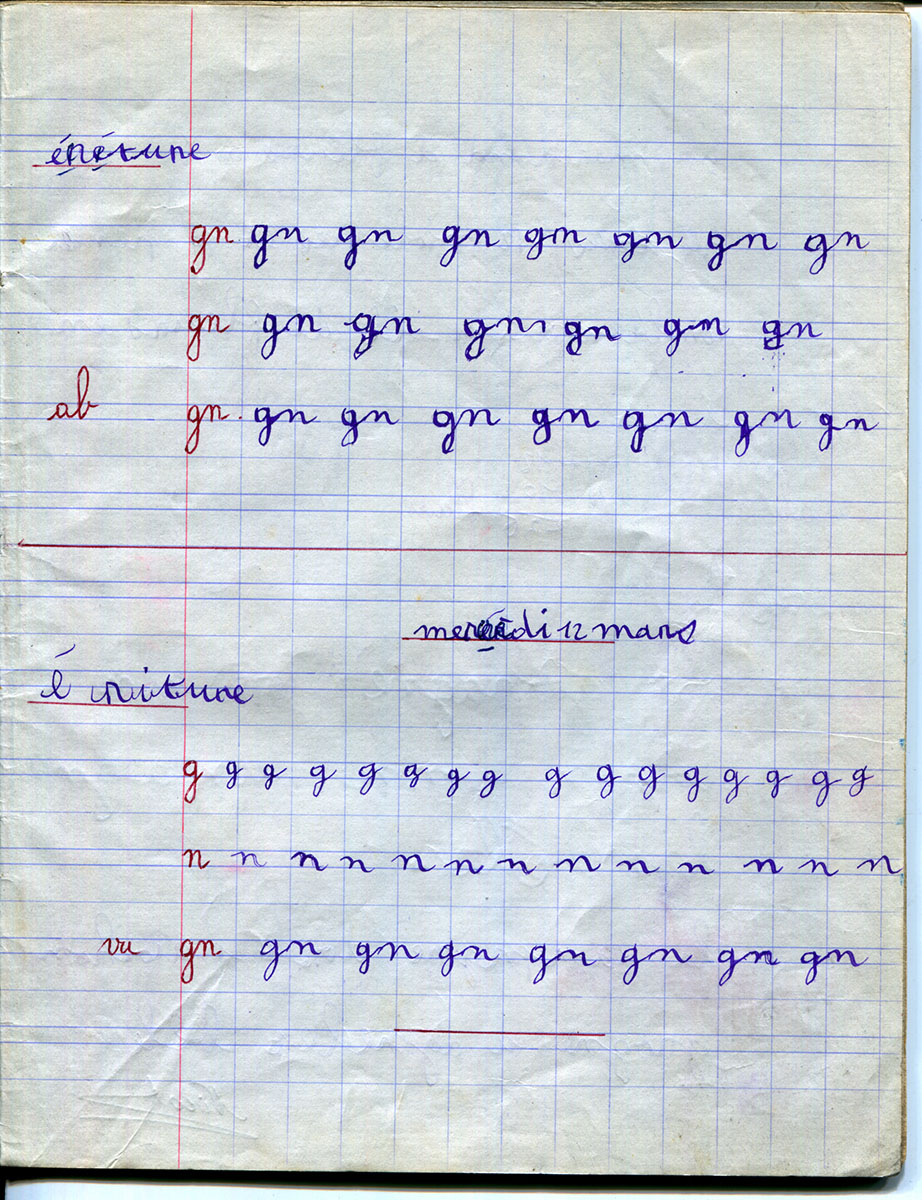 éréture
gn gn gn gn gn gn gn gn
gn gn gn gn gn gn gn
ab gn. gn gn gn gn gn gn gn
mercredi 12 mars
é criture
g g g g g g g g g g g g g g g g
n n n n n n n n n n n n n
vu gn gn gn gn gn gn gn gn